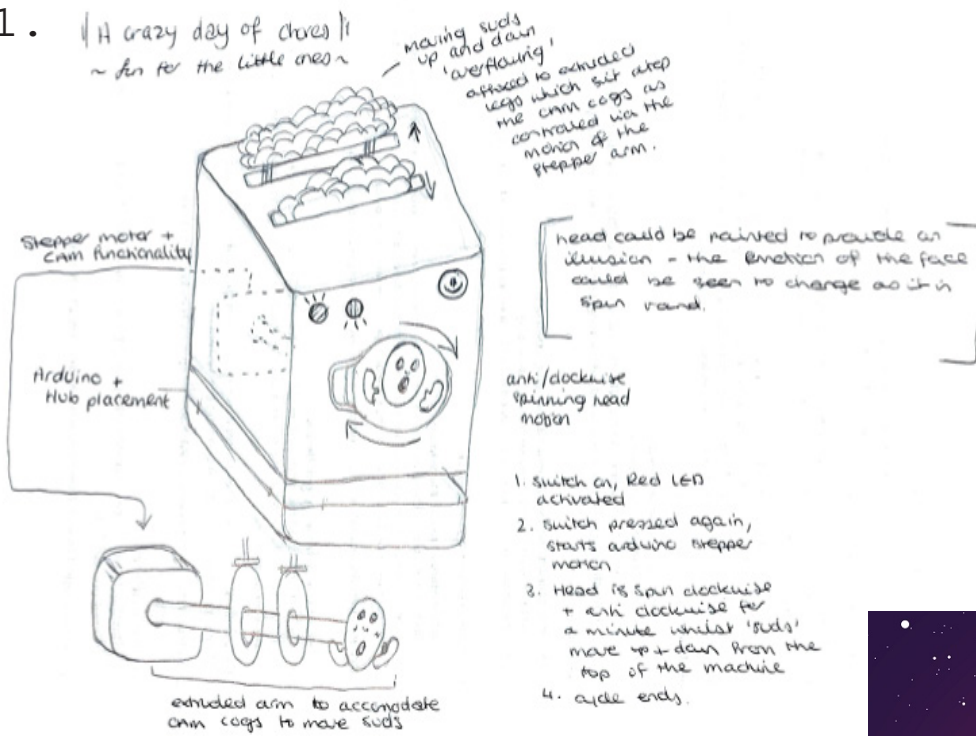 1.
"A crazy day of chores"
~ fun for the little ones ~
moving suds
up and down
'overflowing'
affixed to extruded
legs which sit atop
the cam cogs as
controlled via the
motion of the
stepper arm.
Stepper motor +
CAM functionality
Arduino +
Hub placement
head could be painted to provide an
illusion - the emotion of the face
could be seen to change as it is
spun round.
anti/clockwise
spinning head
motion
1. switch on, Red LED
activated
2. switch pressed again,
starts arduino stepper
motion
3. Head is spun clockwise
+ anti clockwise for
a minute whilst 'suds'
move up + down from the
top of the machine
4. cycle ends.
extruded arm to accomodate
cam cogs to move suds